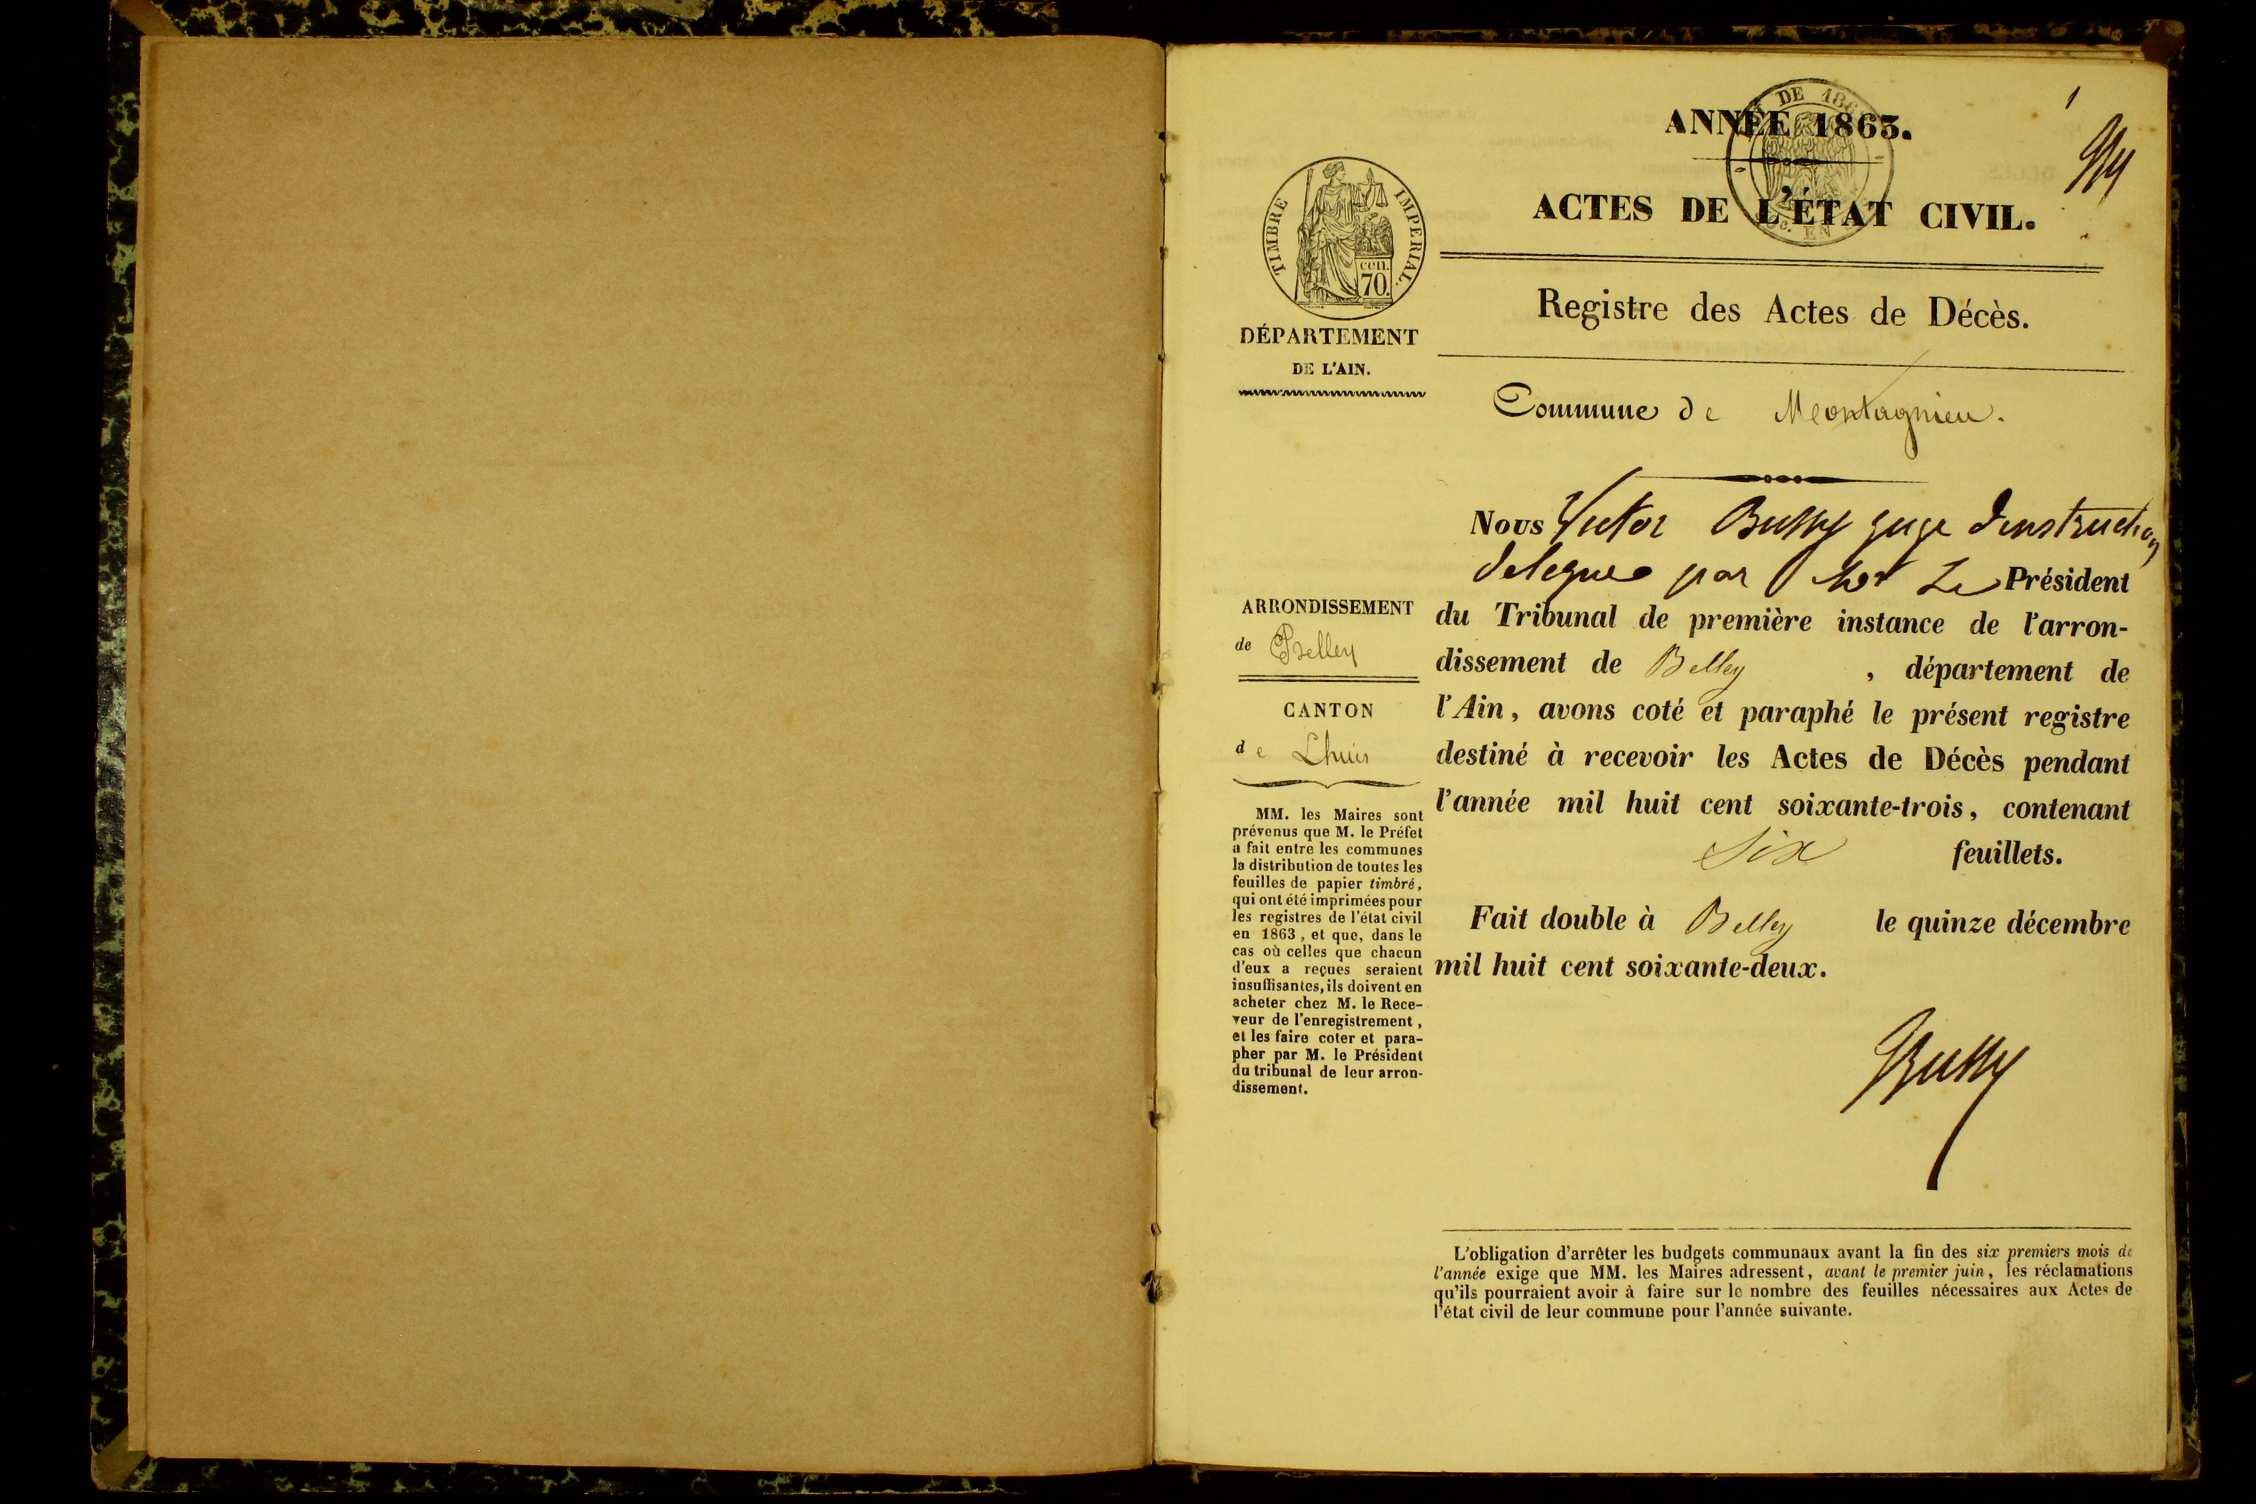 1
ANNÉE 1863.
DE 186
EN
ACTES DE L'ÉTAT CIVIL.
TIMBRE IMPERIAL.
cen.
70.
Registre des Actes de Décès.
DÉPARTEMENT
DE L'AIN.
Commune de Montagnieu.
Nous Victor Bussy juge d'instruction
délégué par Mr Le Président
du Tribunal de première instance de l'arron-
dissement de Belley , département de
l'Ain, avons coté et paraphé le présent registre
destiné à recevoir les Actes de Décès pendant
l'année mil huit cent soixante-trois, contenant
six feuillets.
Fait double à Belley le quinze décembre
mil huit cent soixante-deux.
Bussy
ARRONDISSEMENT
de Belley
CANTON
de Lhuis
MM. les Maires sont
prévenus que M. le Préfet
a fait entre les communes
la distribution de toutes les
feuilles de papier timbré,
qui ont été imprimées pour
les registres de l'état civil
en 1863, et que, dans le
cas où celles que chacun
d'eux a reçues seraient
insuffisantes, ils doivent en
acheter chez M. le Rece-
veur de l'enregistrement,
et les faire coter et para-
pher par M. le Président
du tribunal de leur arron-
dissement.
L'obligation d'arrêter les budgets communaux avant la fin des six premiers mois de
l'année exige que MM. les Maires adressent, avant le premier juin, les réclamations
qu'ils pourraient avoir à faire sur le nombre des feuilles nécessaires aux Actes de
l'état civil de leur commune pour l'année suivante.